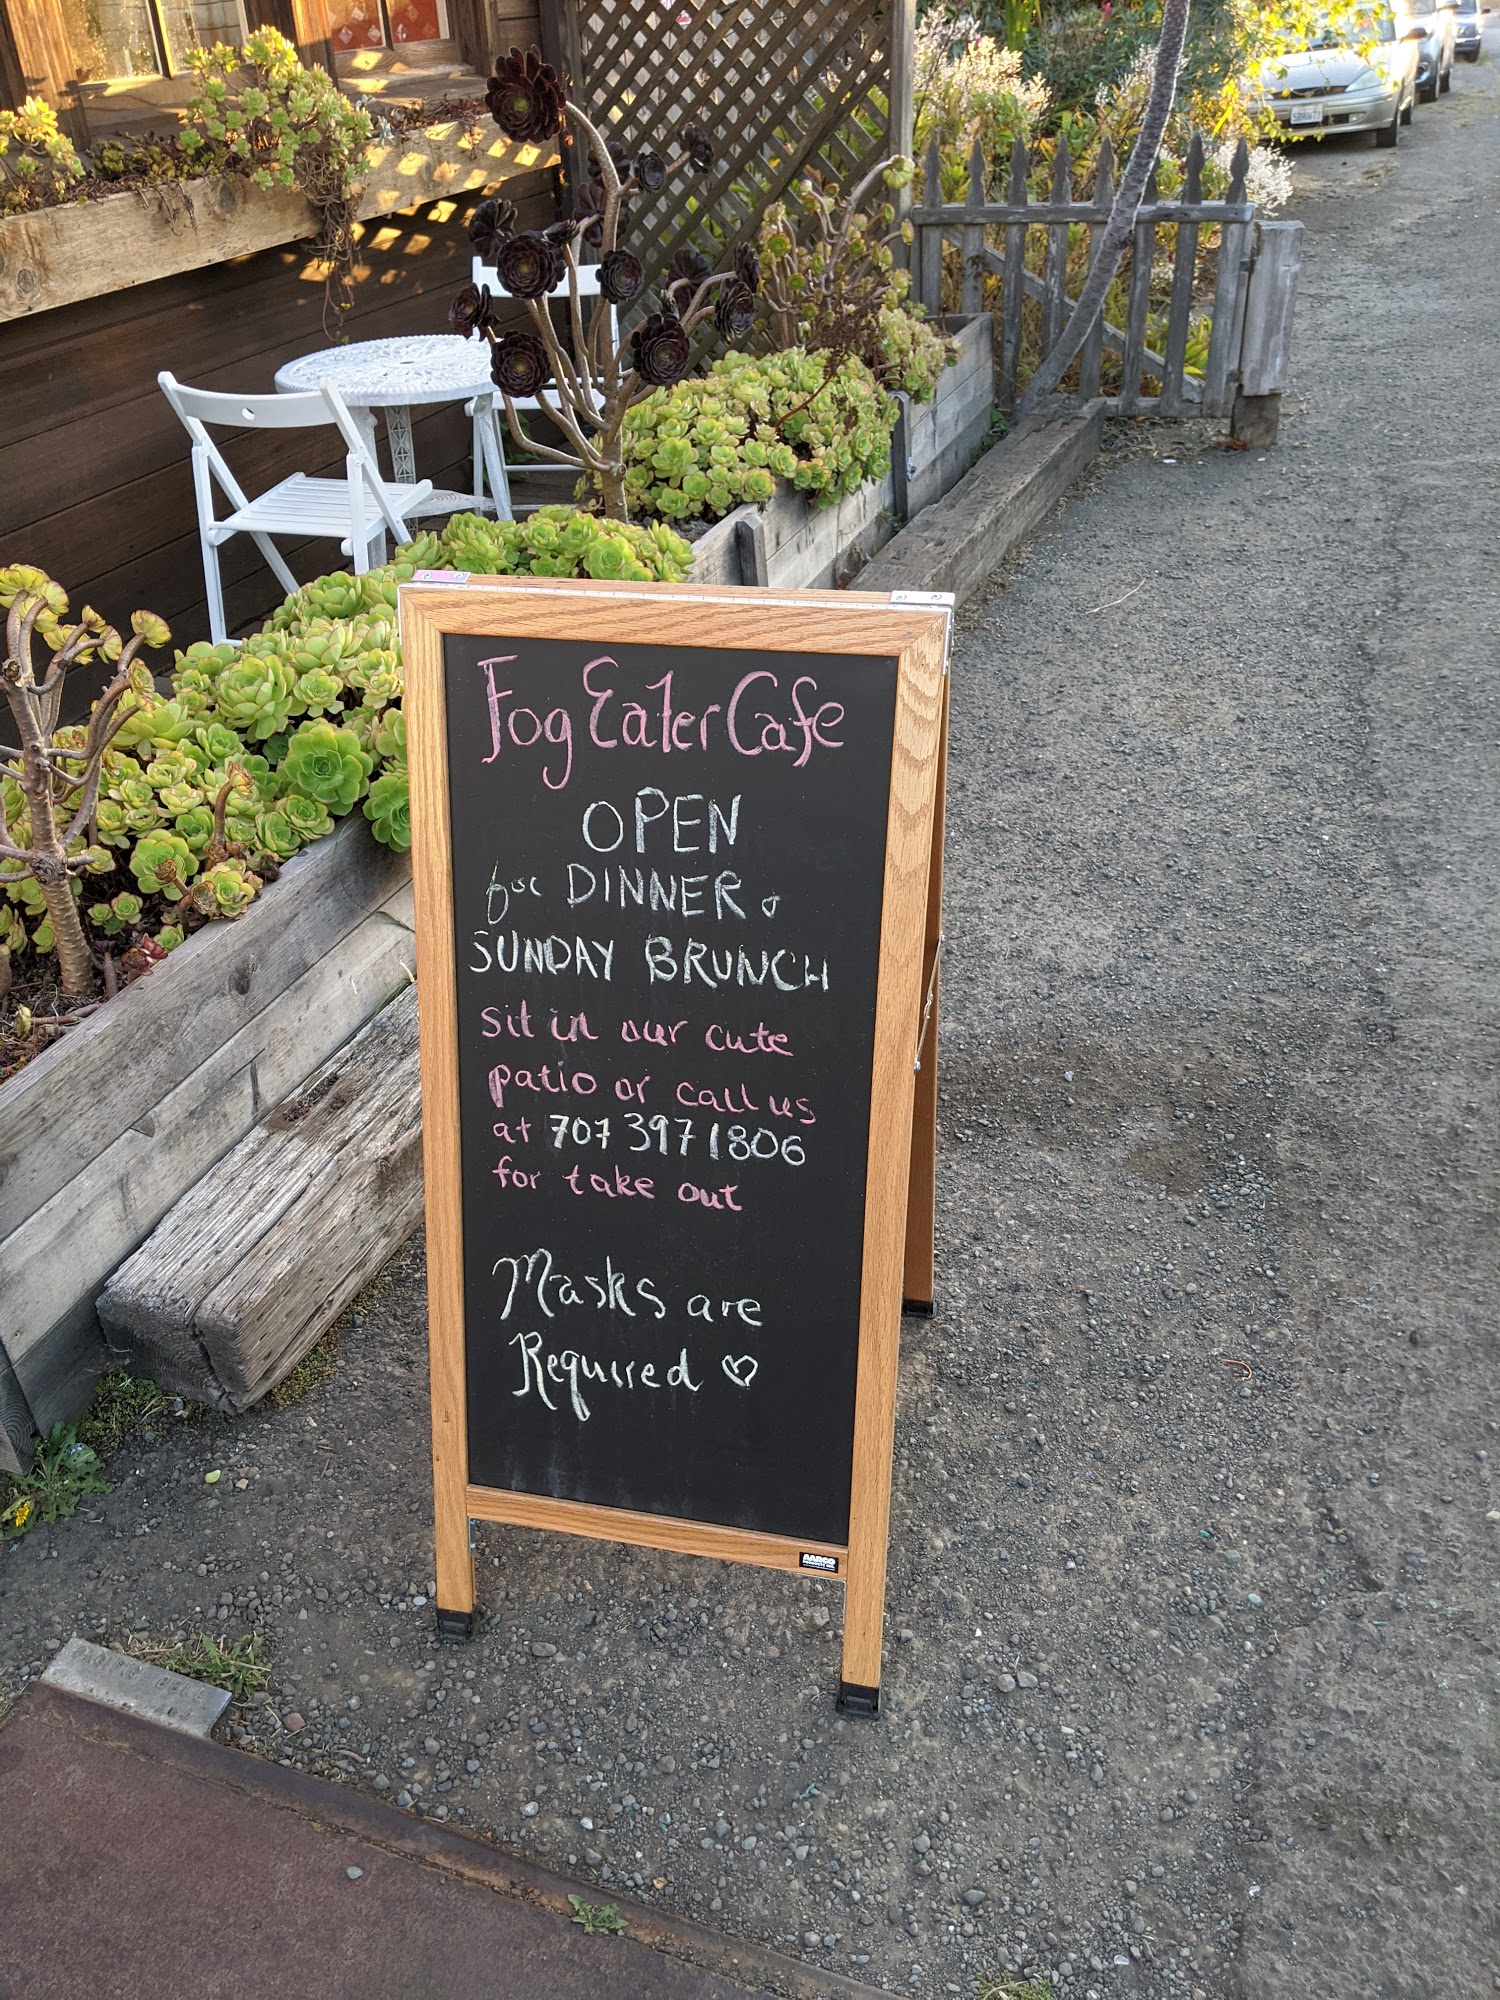 Fog Eater Cafe
OPEN
for DINNER &
SUNDAY BRUNCH
sit in our cute
patio or call us
at 707 397 1806
for take out
Masks are
Required ♡
AARCO